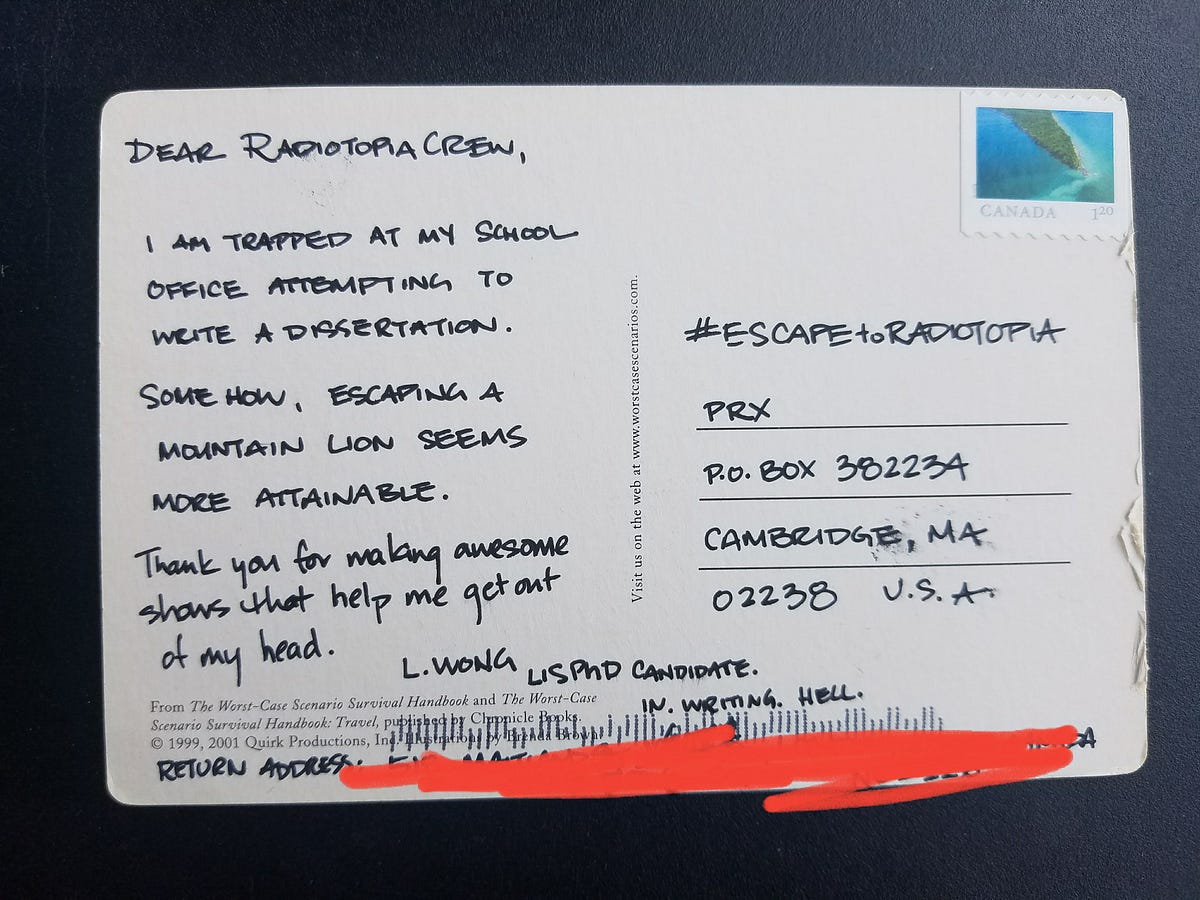 DEAR RADIOTOPIA CREW,
I AM TRAPPED AT MY SCHOOL
OFFICE ATTEMPTING TO
WRITE A DISSERTATION.
SOMEHOW, ESCAPING A
MOUNTAIN LION SEEMS
MORE ATTAINABLE.
Thank you for making awesome
shows that help me get out
of my head.
L. WONG LIS PHD CANDIDATE.
IN. WRITING. HELL.
From The Worst-Case Scenario Survival Handbook and The Worst-Case
Scenario Survival Handbook: Travel, published by Chronicle Books.
© 1999, 2001 Quirk Productions, Inc. Illustrations by Brenda Brown
RETURN ADDRESS:
Visit us on the web at www.worstcasescenarios.com.
CANADA 120
#ESCAPEtoRADIOTOPIA
PRX
P.O. BOX 382234
CAMBRIDGE, MA
02238 U.S.A.